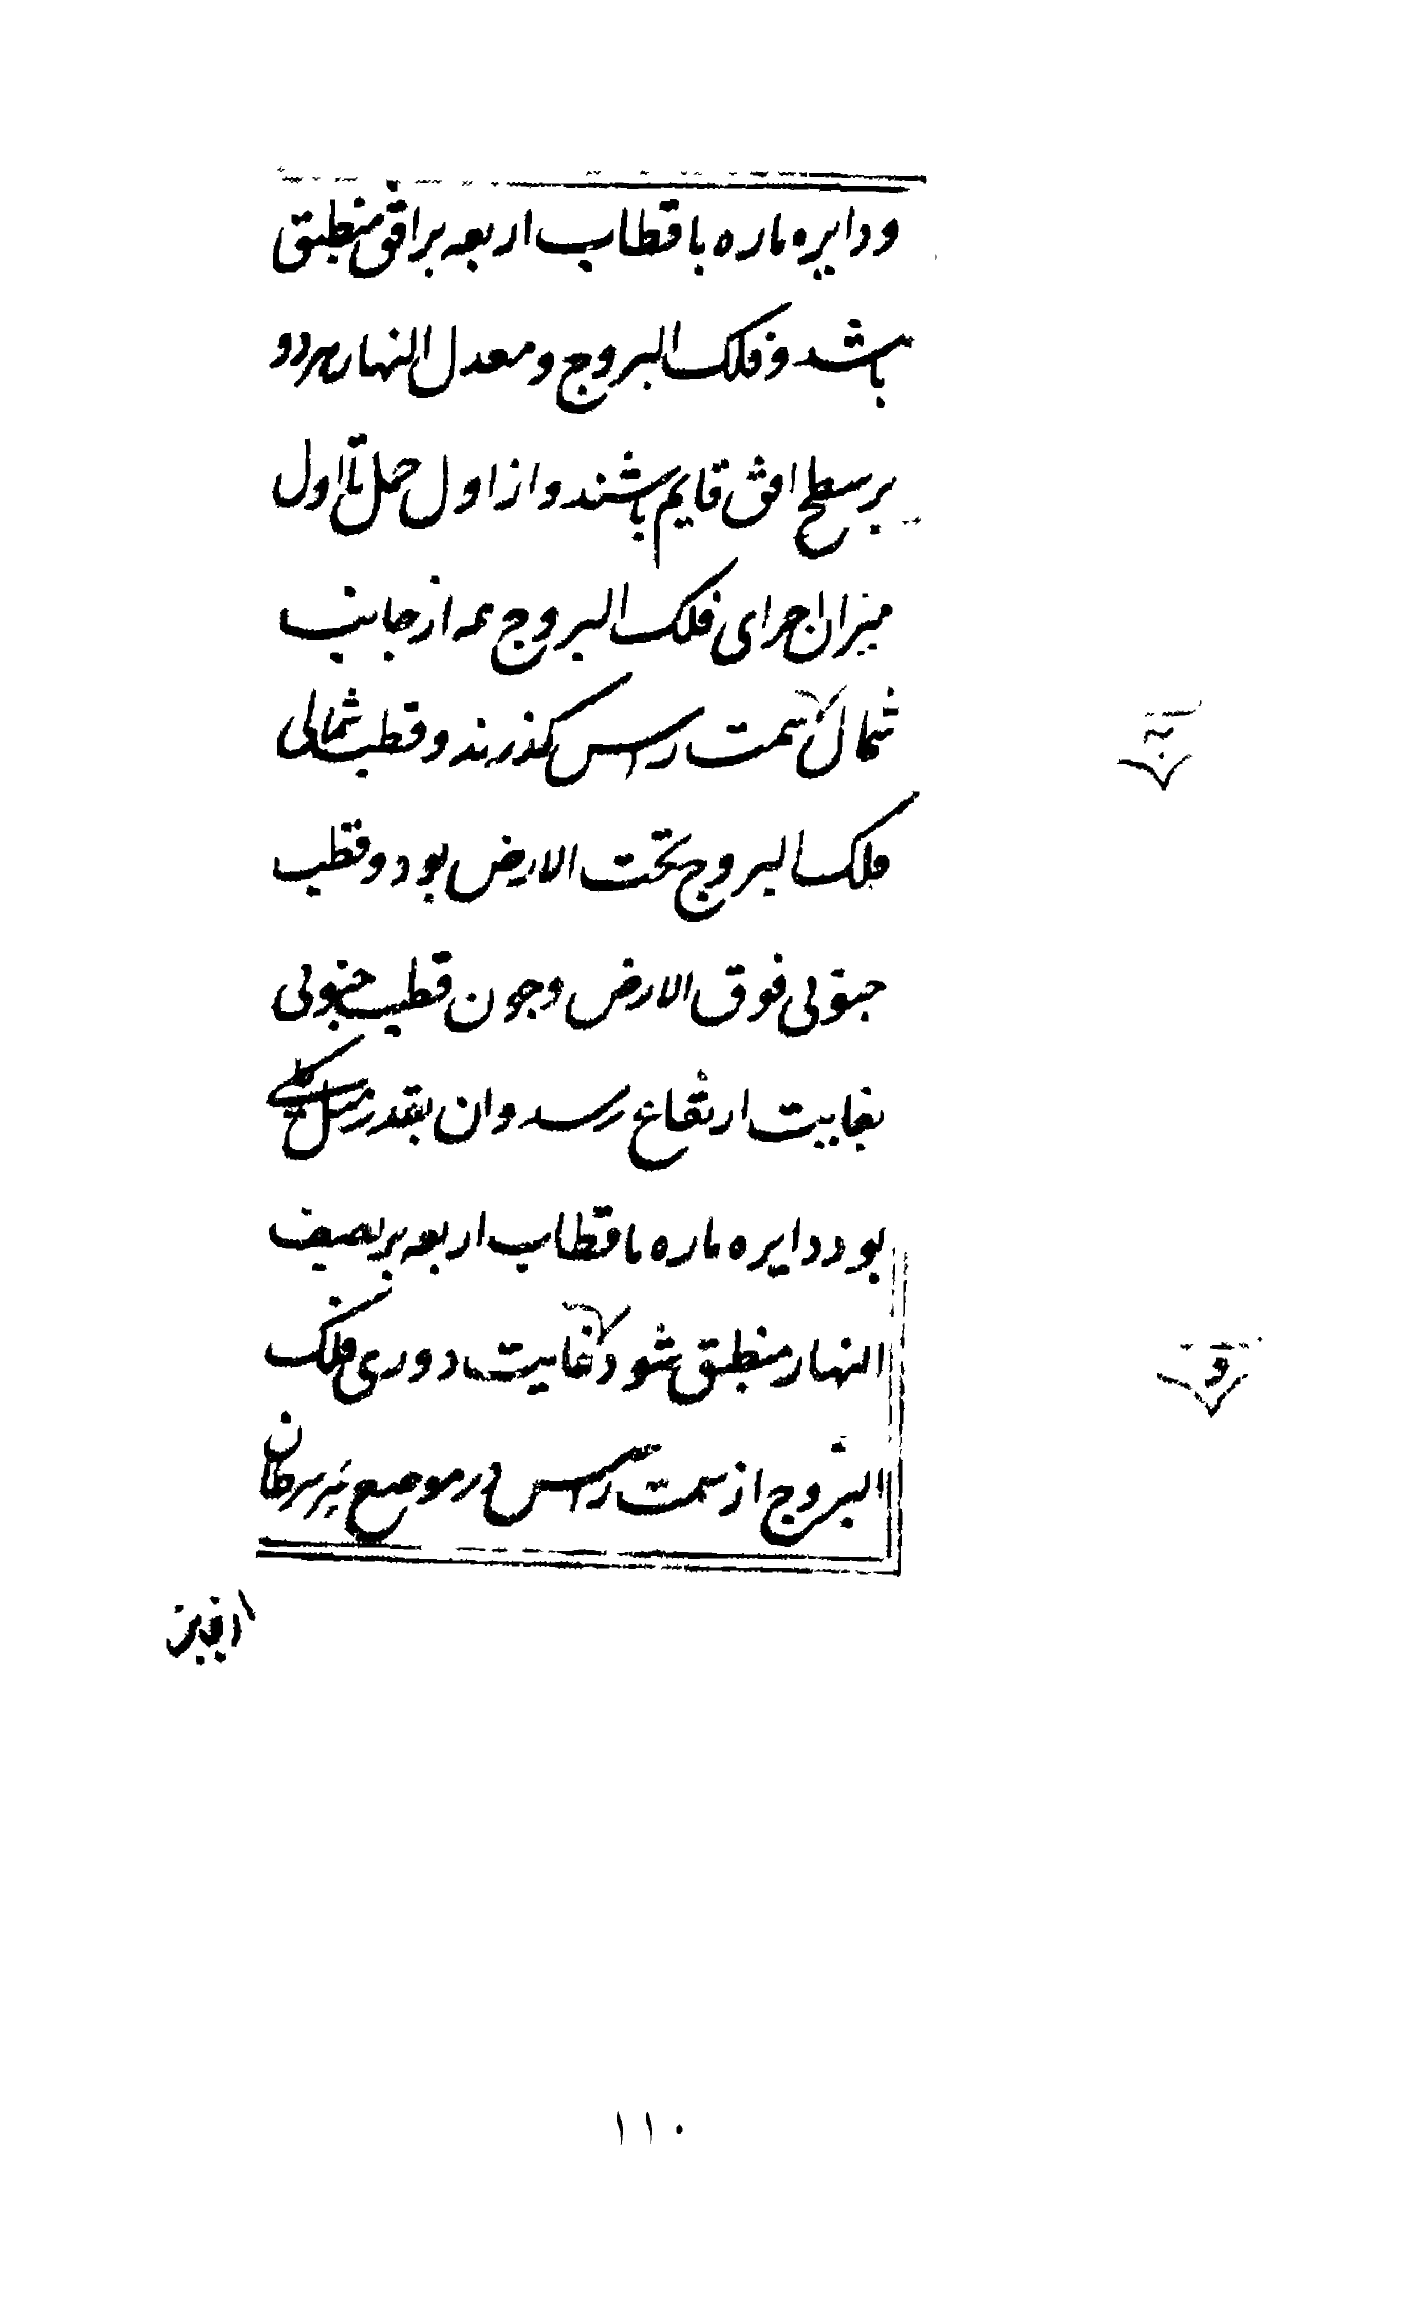 و دایره ماره باقطاب اربعه بر افق منطبق
باشد و فلک البروج و معدل النهار هر دو
بر سطح افق قایم باشند و از اول حمل تا اول
میزان اجزای فلک البروج همه از جانب
شمال سمت راس کذرند و قطب شمالی
فلک البروج تحت الارض بود و قطب
جنوبی فوق الارض و جون قطب جنوبی
بغایت ارتفاع رسد و ان بقدر میل کلی
بود دایره ماره باقطاب اربعه بر نصف
النهار منطبق شود غایت دوری فلک
البروج از سمت راس در موضع سرطان
به
و
۱۱۰